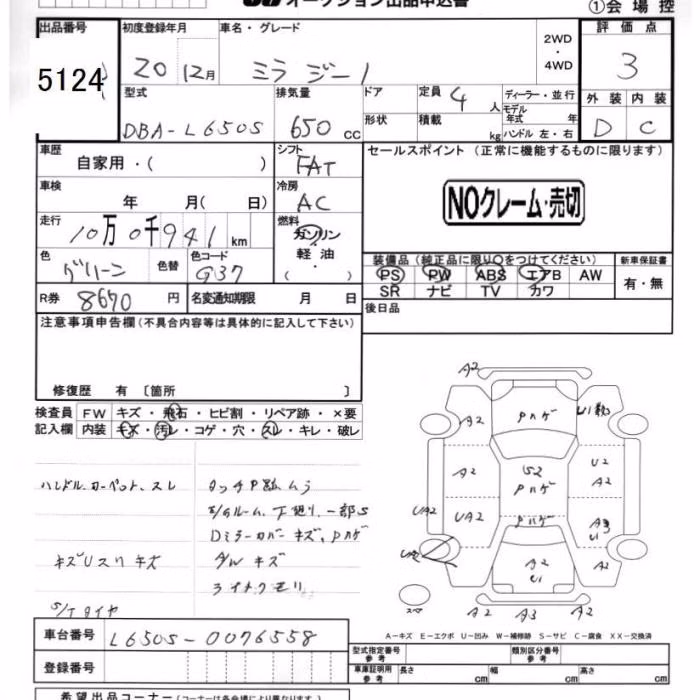 オークション出品申込書
①会場控
出品番号
5124
初度登録年月
20 12月
車名・グレード
ミラ ジーノ
2WD
・
4WD
評価点
3
型式
DBA-L650S
排気量
650 CC
ドア
形状
定員 4 人
積載 kg
ディーラー・並行
モデル年式 年
ハンドル 左・右
外装 内装
D C
車歴
自家用・( )
シフト
FAT
セールスポイント (正常に機能するものに限ります)
NOクレーム・売切
車検
年 月( 日)
冷房
AC
走行
10万0千941 km
燃料
ガソリン
軽油
・
( )
色
グリーン
色替
色コード
G37
装備品(純正品に限り○をつけてください)
PS PW ABS エアB AW
SR ナビ TV カワ
新車保証書
有・無
R券 8670 円
名変通知期限 月 日
後日品
注意事項申告欄(不具合内容等は具体的に記入して下さい)
修復歴 有 〔箇所 〕
検査員
記入欄
FW キズ・飛石・ヒビ割・リペア跡・×要
内装 キズ・汚レ・コゲ・穴・スレ・キレ・破レ
ハンドル、カーペット、スレ
キズUスリキズ
S/Tタイヤ
タッチP
ムラ
ルーム、下廻り、一部S
Dミラーカバー キズ、Pハゲ
キズ
ライトクモリ
A2
A2
Pハゲ
U1
A2
S2
Pハゲ
U2
A2
UA2
UA2
Pハゲ
A3
U1
A2
U1
A2
A2
A3
A2
スペア
A-キズ E-エクボ U-凹み W-補修跡 S-サビ C-腐食 XX-交換済
車台番号 L650S-0076558
登録番号
型式指定番号
参考
類別区分番号
参考
車庫証明用
参考
長さ cm
幅 cm
高さ cm
希望出品コーナー